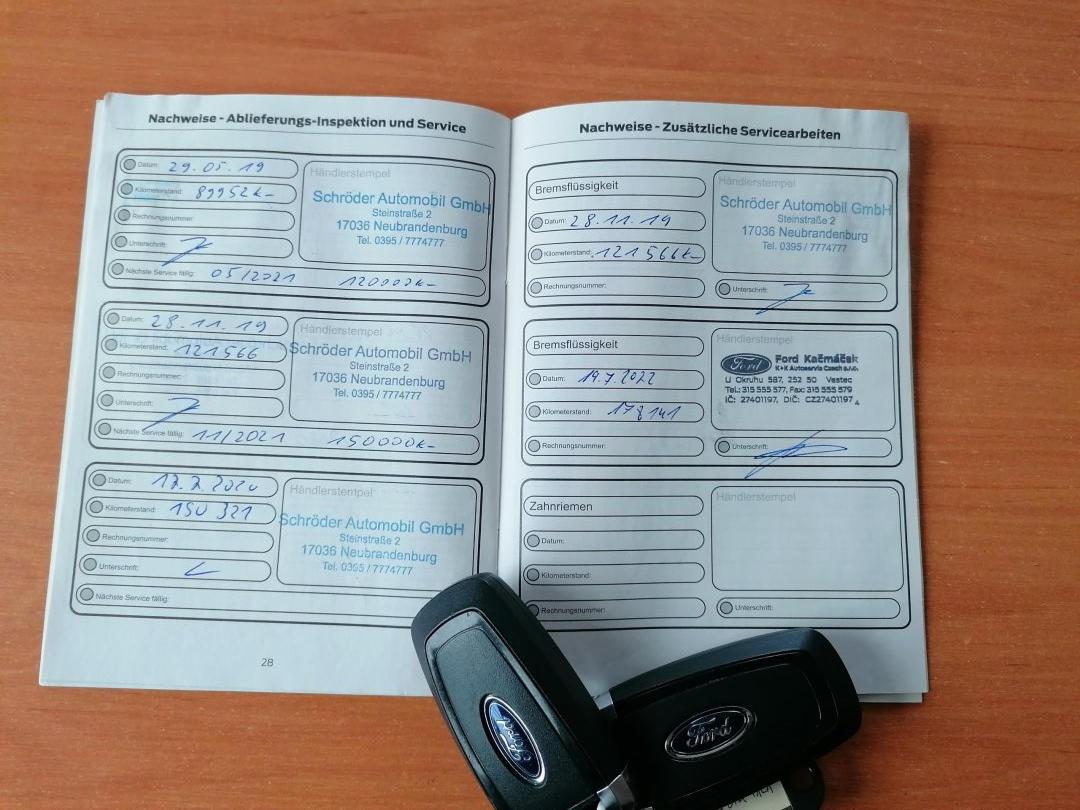 Nachweise - Ablieferungs-Inspektion und Service
Datum: 29.05.19
Kilometerstand: 89952k-
Rechnungsnummer:
Unterschrift:
Nächste Service fällig: 05/2021 120000k-
Händlerstempel
Schröder Automobil GmbH
Steinstraße 2
17036 Neubrandenburg
Tel. 0395 / 7774777
Datum: 28.11.19
Kilometerstand: 121566
Rechnungsnummer:
Unterschrift:
Nächste Service fällig: 11/2021 150000k-
Händlerstempel
Schröder Automobil GmbH
Steinstraße 2
17036 Neubrandenburg
Tel. 0395 / 7774777
Datum: 17.7.2020
Kilometerstand: 150 321
Rechnungsnummer:
Unterschrift:
Nächste Service fällig:
Händlerstempel
Schröder Automobil GmbH
Steinstraße 2
17036 Neubrandenburg
Tel. 0395 / 7774777
28
Nachweise - Zusätzliche Servicearbeiten
Bremsflüssigkeit
Datum: 28.11.19
Kilometerstand: 121566k-
Rechnungsnummer:
Händlerstempel
Schröder Automobil GmbH
Steinstraße 2
17036 Neubrandenburg
Tel. 0395 / 7774777
Unterschrift:
Bremsflüssigkeit
Datum: 19.7.2022
Kilometerstand: 178141
Rechnungsnummer:
Händlerstempel
Ford Ford Kačmáček
K+K Autoservis Czech s.r.o.
U Okruhu 587, 252 50 Vestec
Tel.: 315 555 577, Fax: 315 555 579
IČ: 27401197, DIČ: CZ27401197 4
Unterschrift:
Zahnriemen
Datum:
Kilometerstand:
Rechnungsnummer:
Händlerstempel
Unterschrift:
Ford
Ford